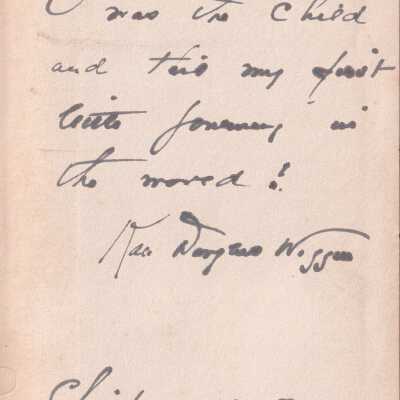 I was the child
and this my first
little journey in
the world!
Kate Douglas Wiggin